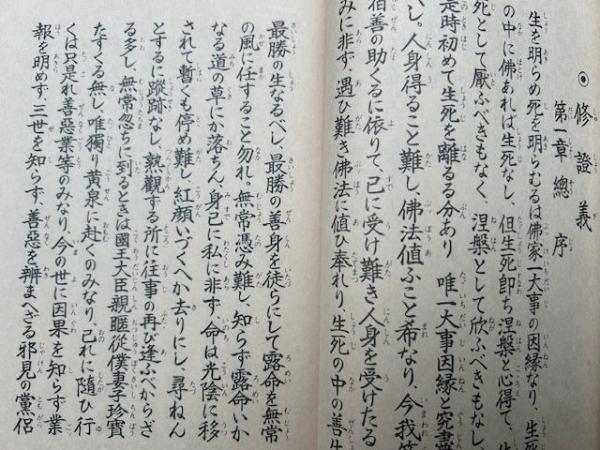 修證義
第一章 總序
生を明らめ死を明らむるは佛家一大事の因縁なり、生死
の中に佛あれば生死なし、但生死即ち涅槃と心得て、
死として厭ふべきもなく、涅槃として欣ふべきもなし、
是時初めて生死を離るる分あり 唯一大事因縁と究盡
べし。人身得ること難し、佛法値ふこと希なり、今我等
宿善の助くるに依りて、已に受け難き人身を受けたる
みに非ず、遇ひ難き佛法に値ひ奉れり、生死の中の善生
最勝の生なるべし、最勝の善身を徒らにして露命を無常
の風に任すること勿れ。無常憑み難し、知らず露命いか
なる道の草にか落ちん、身已に私に非ず、命は光陰に移
されて暫くも停め難し、紅顔いづくへか去りにし、尋ねん
とするに蹤跡なし、熟觀する所に往事の再び逢ふべからざ
る多し、無常忽ちに到るときは國王大臣親暱從僕妻子珍寳
たすくる無し、唯獨り黄泉に赴くのみなり、己れに隨ひ行
くは只是れ善惡業等のみなり、今の世に因果を知らず業
報を明めず、三世を知らず、善惡を辨まへざる邪見の黨侶